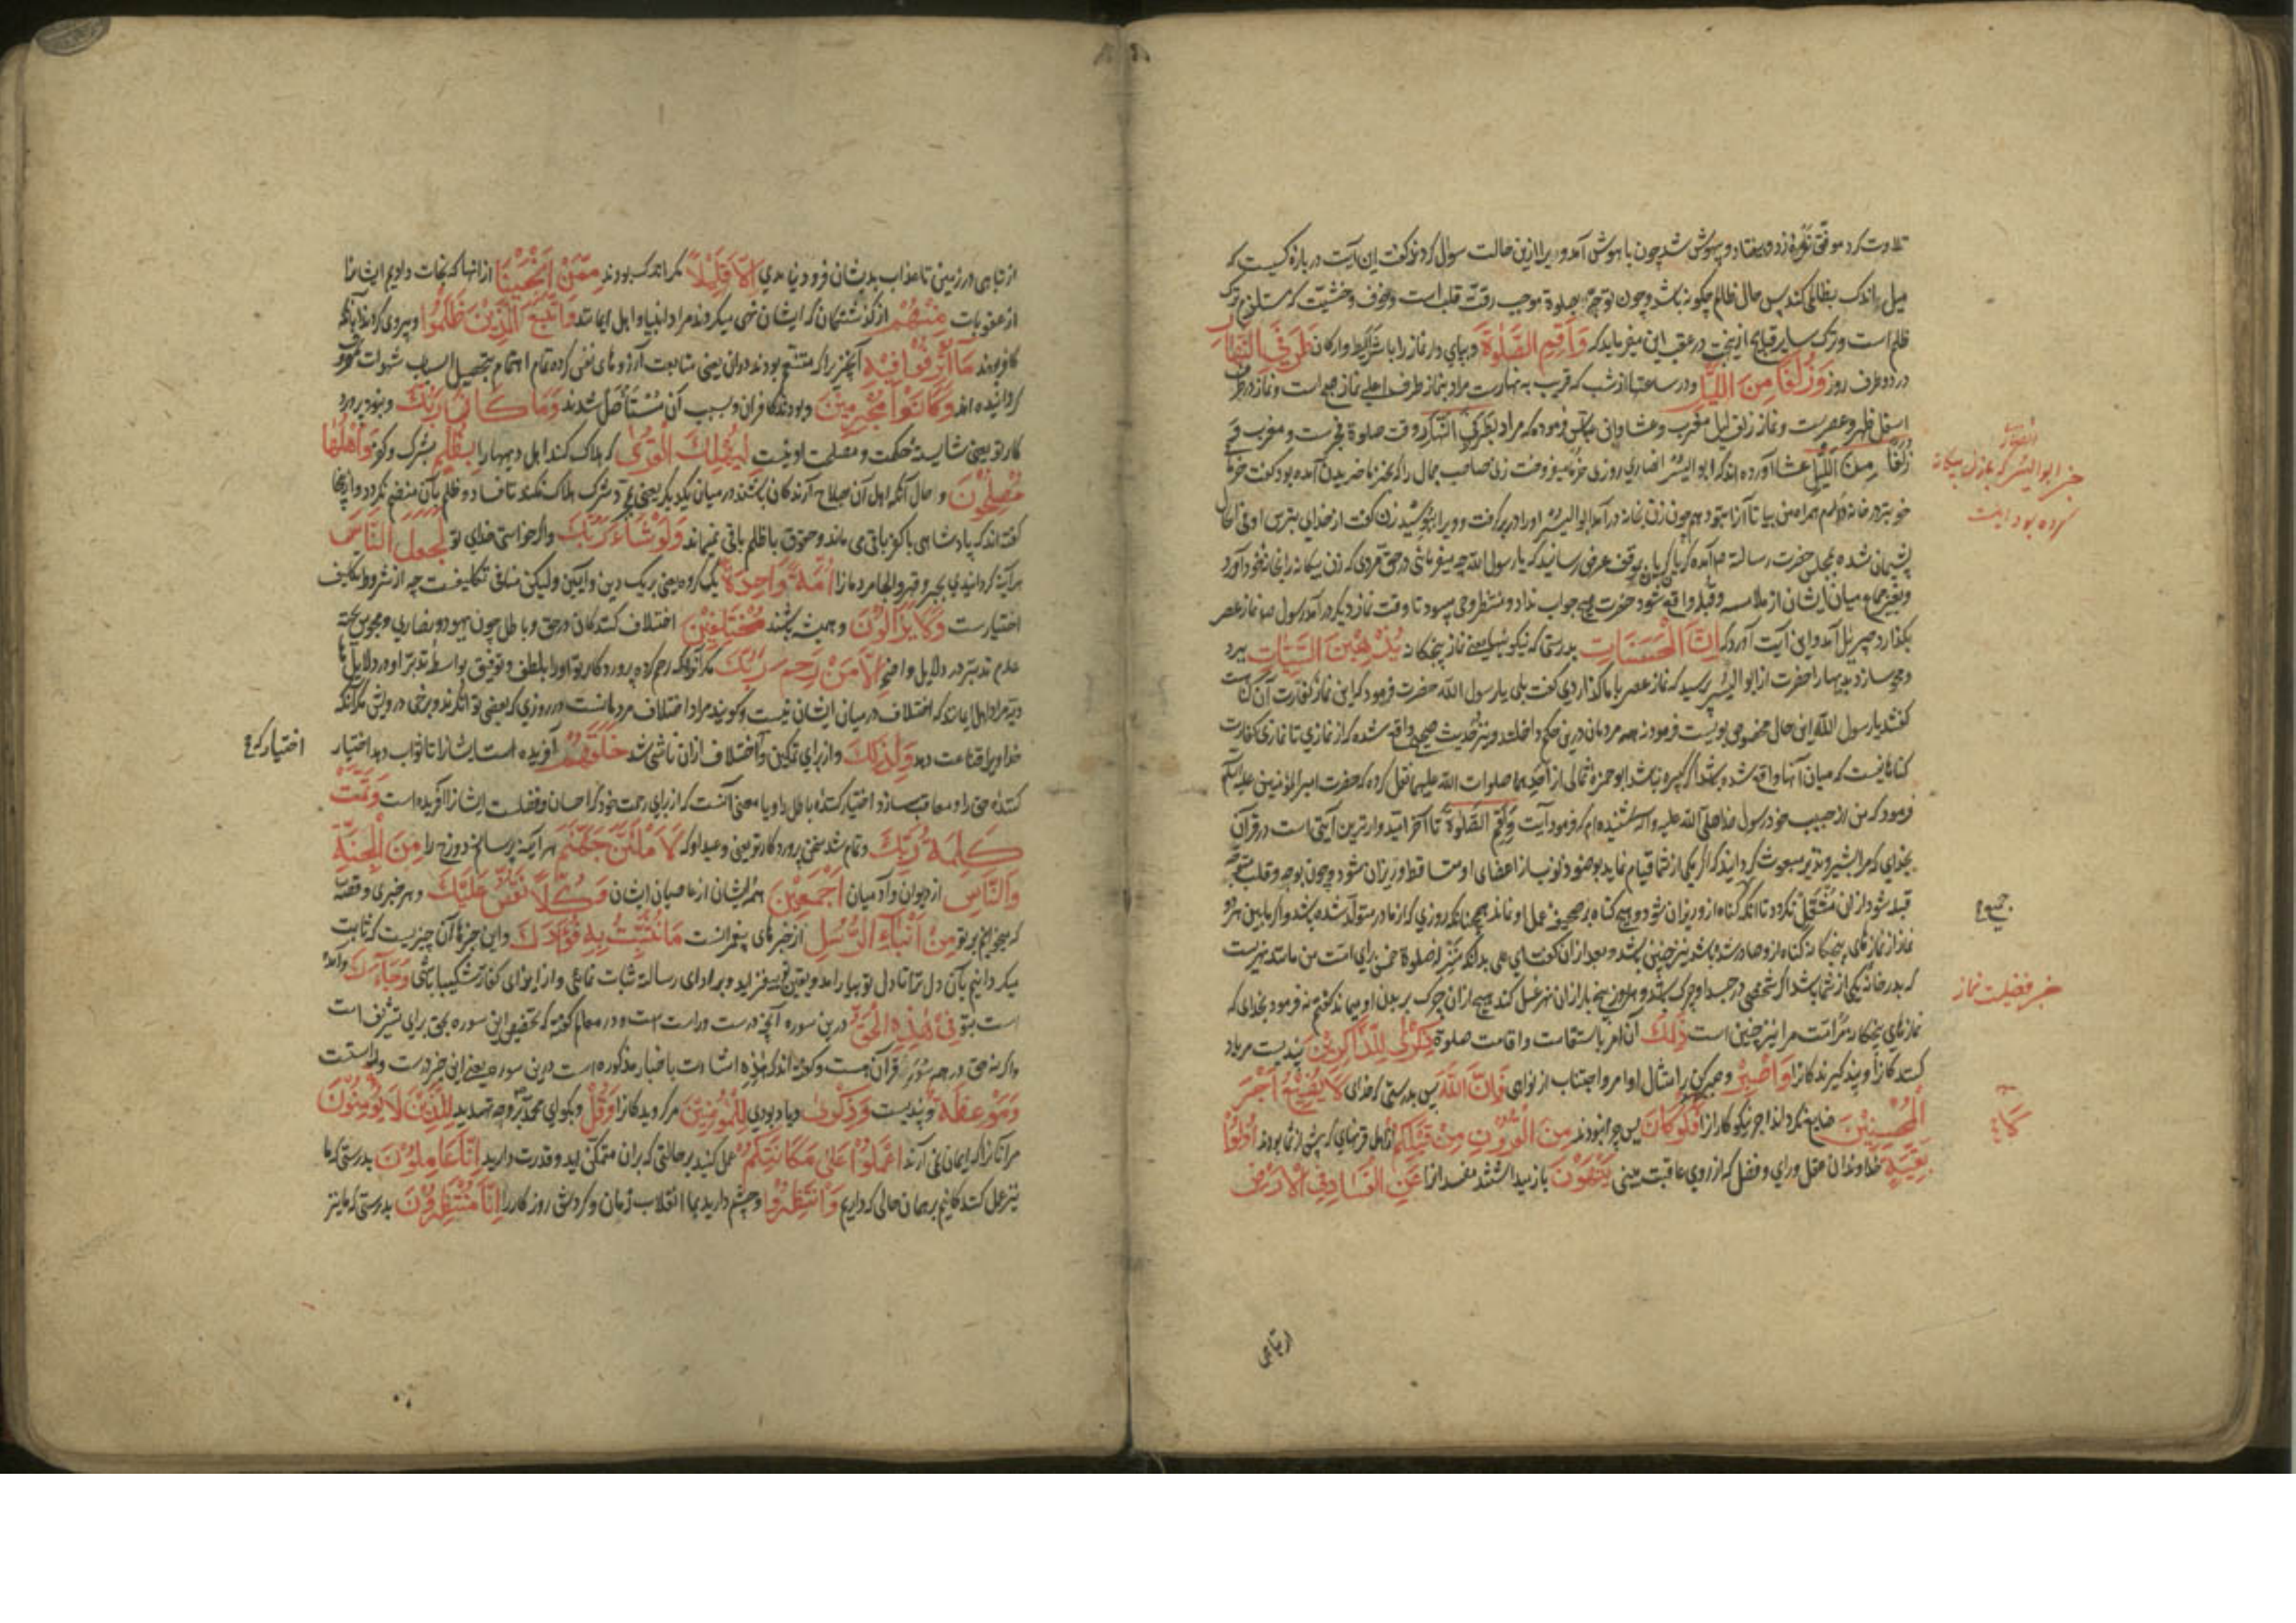 تلاوت کرد موفق نعره زد و بیفتاد و بیهوش شد چون باهوش آمد ویرا ازین حالت سوال کردند گفت این آیت در باره کسیست که
میل اندک بظالمی کند پس حال ظالم چگونه باشد و چون توجه بصلوة موجب رقت قلب است و خوف و خشیت که مستلزم ترک
ظلم است و ترک سایر قبایح ازینجهت در عقب این میفرماید که وَاَقِمِ الصَّلٰوةَ وبپای دار نماز را با شرایط و ارکان طَرَفَیِ النَّهَارِ
در دو طرف روز وَزُلَفًا مِنَ اللَّیْلِ و در ساعتها از شب که قریب به نهارست مراد بنماز طرف اعلی نماز صبح است و نماز در طرف
اسفل ظهر و عصرست و نماز زلف لیل مغرب و عشا و ابن عباس فرموده که مراد بطرفی النهار وقت صلوة فجرست و مغرب و
زُلَفًا مِنَ اللَّیْلِ عشا آورده اند که ابو الیسر انصاری روزی خرما میفروخت زنی صاحب جمال را که بخرما خریدن آمده بود گفت خرمای
خوبتر در خانه دارم همراه من بیا تا آنرا بتو دهم چون زن بخانه درآمد ابوالیسر او را در بر گرفت و ویرا ببوسید زن گفت از خدای بترس او فی الحال
پشیمان شده بمجلس حضرت رسالت ص آمده گریان گریان بموقف عرض رسانید که یا رسول الله چه میفرمائی در حق مردی که زن بیگانه را بخانه خود آورد
و بغیر جماع میان ایشان از ملامسه و قبله واقع شود حضرت هیچ جواب نداد و منتظر وحی میبود تا وقت نماز دیگر درآمد رسول ص نماز عصر
بگذارد جبرئیل آمد و این آیت آورد که اِنَّ الْحَسَنَاتِ بدرستی که نیکوئیها یعنی نماز پنجگانه یُذْهِبْنَ السَّیِّئَاتِ ببرد
و محو سازد بدیها را حضرت از ابو الیسر پرسید که نماز عصر با ما گذاردی گفت بلی یا رسول الله حضرت فرمود که این نماز کفارت آن گناهست
گفتند یا رسول الله این حال مخصوص بویست فرمود نه همه مردمان درین حکم داخلند و نیز در حدیث صحیح واقع شده که از نمازی تا نمازی کفارت
گناهانیست که میان آنها واقع شده باشد اگر کبیره نباشد ابو حمزه ثمالی از احدهما صلوات الله علیهما نقل کرده که حضرت امیر المؤمنین علیه السلم
فرمود که من از حبیب خود رسول خدا صلی الله علیه و اله شنیده ام که فرمود آیت وَاَقِمِ الصَّلٰوةَ تا آخر امیدوارترین آیتی است در قرآن
بخدای که مرا بشیر و نذیر مبعوث گردانید که اگر یکی از شما قیام نماید بوضو ذنوب از اعضای او متساقط و ریزان شود و چون بوجه و قلب متوجه
قبله شود ازان منفتل نگردد تا آنکه گناه ازو ریزان شود و هیچ گناه بر صحیفه عمل او نماند همچنانکه روزی که از مادر متولد شده باشد و اگر مابین هر دو
نماز از نمازهای پنجگانه گناه ازو صادر شده باشد نیز چنین باشد و بعد ازان گفت ای علی بدانکه منزلت صلوة خمس برای امت من مانند نهریست
که بدر خانه یکی از شما باشد اگر شخصی در جسد او چرک باشد و هر روز پنج بار ازان نهر غسل کند هیچ ازان چرک بر بدن او بماند گفتم نه فرمود بخدای که
نمازهای پنجگانه مر امت مرا نیز چنین است ذٰلِكَ آن امر باستقامت و اقامت صلوة ذِکْرٰی لِلذَّاکِرِیْنَ پندیست مر یاد
کنندگانرا و پند گیرندگانرا وَاصْبِرْ و صبر کن بر امتثال اوامر و اجتناب از نواهی فَاِنَّ اللّٰهَ پس بدرستی که خدای لَا یُضِیْعُ اَجْرَ
الْمُحْسِنِیْنَ ضایع نگرداند اجر نیکوکارانرا فَلَوْلَا کَانَ پس چرا نبودند مِنَ الْقُرُوْنِ مِنْ قَبْلِکُمْ از اهل قرنهای که پیش از شما بودند اُولُوْا
بَقِیَّةٍ خداوندان عقل و رای و فضل که از روی عاقبت بینی یَنْهَوْنَ باز میداشتند مفسدانرا عَنِ الْفَسَادِ فِی الْاَرْضِ
خبر ابو الیسر انصاری که بازن بیگانه
کرده بود اینست
جمیع
خبر فضیلت نماز
از تباهی
از تباهی در زمین تا عذاب بدیشان فرود نیامدی اِلَّا قَلِیْلًا مگر اندک بودند مِمَّنْ اَنْجَیْنَا از آنها که نجات دادیم ایشانرا
از عقوبات مِنْهُمْ از گذشتگان که ایشان نهی میکردند مراد انبیا و اهل ایمانند وَاتَّبَعَ الَّذِیْنَ ظَلَمُوْا و پیروی کردند آنانکه
کافر بودند مَا اُتْرِفُوْا فِیْهِ آنچیز را که متنعم بودند دران یعنی متابعت آرزوهای نفس کرده تمام اهتمام بتحصیل اسباب شهوات مصروف
گردانیده اند وَکَانُوْا مُجْرِمِیْنَ و بودند کافران و بسبب آن مستأصل شدند وَمَا کَانَ رَبُّكَ و نبود پروردگار
کار تو یعنی شایسته حکمت و مصلحت او نیست لِیُهْلِكَ الْقُرٰی که هلاک کند اهل دیهها را بِظُلْمٍ بشرک و کفر وَاَهْلُهَا
مُصْلِحُوْنَ و حال آنکه اهل آن صلاح آرندگان باشند در میان یکدیگر یعنی بمجرد شرک هلاک نکند تا فساد و ظلم بآن منضم نگردد و از اینجا
گفته اند که پادشاهی با کفر باقی می ماند و حقوق با ظلم باقی نمیماند وَلَوْ شَاءَ رَبُّكَ و اگر خواستی خدای تو لَجَعَلَ النَّاسَ
هر آینه گردانیدی بجبر و قهر و الجا مردمانرا اُمَّةً وَاحِدَةً یک گروه یعنی بریک دین و آیین ولیکن منافی تکلیفست چه از شروط تکلیف
اختیارست وَلَا یَزَالُوْنَ و همیشه باشند مُخْتَلِفِیْنَ اختلاف کنندگان در حق و باطل چون یهود و نصاری و مجوس بجهة
عدم تدبر در دلایل واضحه اِلَّا مَنْ رَحِمَ رَبُّكَ مگر آنرا که رحم کرده پروردگار تو او را بلطف و توفیق بواسطه تدبر او در دلایل
دیّه مراد اهل ایمانند که اختلاف در میان ایشان نیست و گویند مراد اختلاف مردمانست در روزی که بعضی توانگرند و برخی درویش مگر آنکه
خدا ویرا قناعت دهد وَلِذٰلِكَ و از برای تمکین و اختلاف ازان ناشی شد خَلَقَهُمْ آفریده است ایشانرا تا ثواب دهد اختیار
کننده حق را و معاقب سازد اختیار کننده باطل را و یا معنی آنست که از برای رحمت خود که احسان و فضلست ایشانرا آفریده است وَتَمَّتْ
کَلِمَةُ رَبِّكَ و تمام شد سخن پروردگار تو یعنی وعید او که لَاَمْلَئَنَّ جَهَنَّمَ هر آینه پر سازم دوزخ را مِنَ الْجِنَّةِ
وَالنَّاسِ از دیوان و آدمیان اَجْمَعِیْنَ همه ایشان از عاصیان ایشان وَکُلًّا نَقُصُّ عَلَیْكَ و هر خبری و قصه
که میخوانیم بر تو مِنْ اَنْبَاءِ الرُّسُلِ از خبرهای پیغمبرانست مَا نُثَبِّتُ بِهِ فُؤَادَكَ و این خبرها آن چیزیست که ثابت
میگردانیم بآن دل ترا تا دل تو بیارامد و یقین تو بیفزاید و بر ادای رسالت ثبات نمائی و از ایذای کفار شکیبا باشی وَجَاءَكَ و آمده
است بتو فِیْ هٰذِهِ الْحَقُّ درین سوره آنچه درست و راست است و در معالم گفته که تخصیص این سوره بحق برای تشریف است
و اگر نه حق در همه سور قرآن هست و گفته اند که هٰذِهِ اشارت باخبار مذکوره است درین سوره یعنی این خبر درست و راستست
وَمَوْعِظَةٌ و پندیست وَذِکْرٰی و یادبودی لِلْمُؤْمِنِیْنَ مر گرویدگانرا وَقُلْ و بگو ای محمد بر وجه تهدید لِلَّذِیْنَ لَا یُؤْمِنُوْنَ
مر آنانرا که ایمان نمی آرند اعْمَلُوْا عَلٰی مَکَانَتِکُمْ عمل کنید بر حالتی که بران متمکن اید و قدرت دارید اِنَّا عَامِلُوْنَ بدرستی که ما
نیز عمل کنندگانیم بر همان حالی که داریم وَانْتَظِرُوْا و چشم دارید بما انقلاب زمان و گردش روزگار را اِنَّا مُنْتَظِرُوْنَ بدرستی که ما نیز
اختیار که